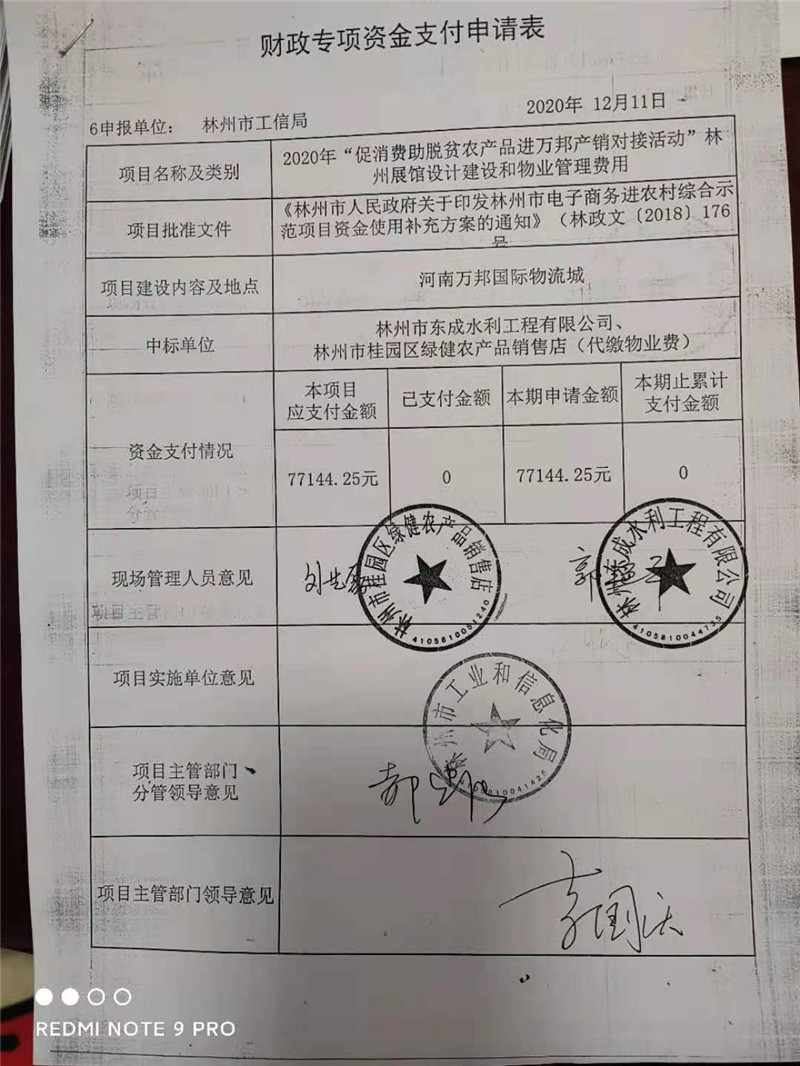 财政专项资金支付申请表
6申报单位： 林州市工信局
2020年 12月11日
项目名称及类别
2020年“促消费助脱贫农产品进万邦产销对接活动”林
州展馆设计建设和物业管理费用
项目批准文件
《林州市人民政府关于印发林州市电子商务进农村综合示
范项目资金使用补充方案的通知》（林政文〔2018〕176
号
项目建设内容及地点
河南万邦国际物流城
中标单位
林州市东成水利工程有限公司、
林州市桂园区绿健农产品销售店（代缴物业费）
资金支付情况
本项目
应支付金额
已支付金额
本期申请金额
本期止累计
支付金额
77144.25元
0
77144.25元
0
现场管理人员意见
林州市桂园区绿健农产品销售店
4105810051260
林州东成水利工程有限公司
4105810044735
项目实施单位意见
林州市工业和信息化局
项目主管部门
分管领导意见
项目主管部门领导意见
REDMI NOTE 9 PRO